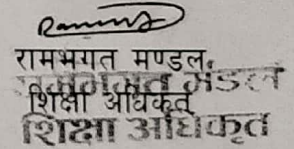 रामभगत मण्डल,
रामभगत मंडल
शिक्षा अधिकृत
शिक्षा अधिकृत